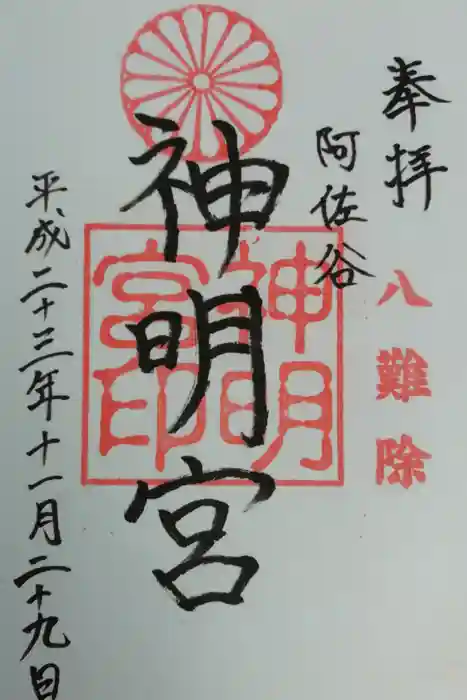 奉拝
八難除
阿佐谷
神明宮
神明
宮印
平成二十三年十一月二十九日